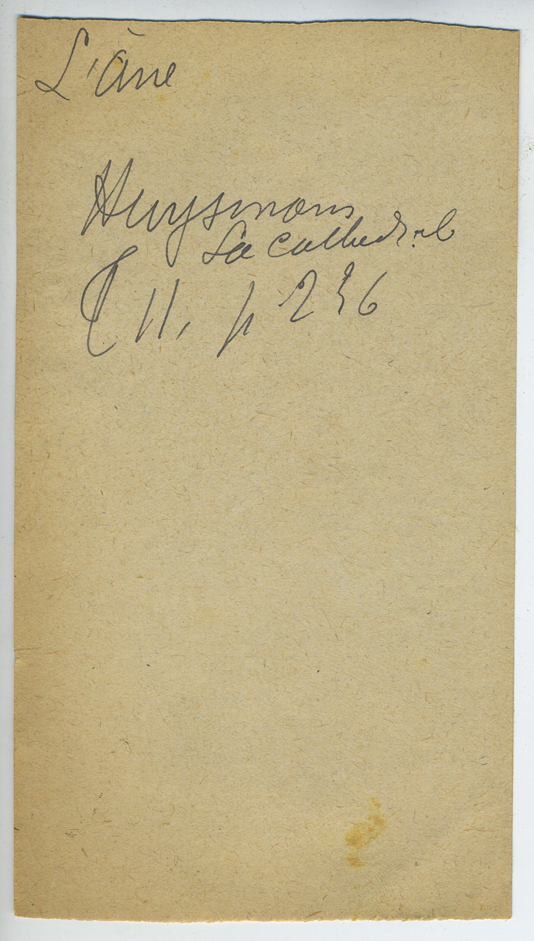 L'Âne
Huysmans
La Cathedral
T II, p 236